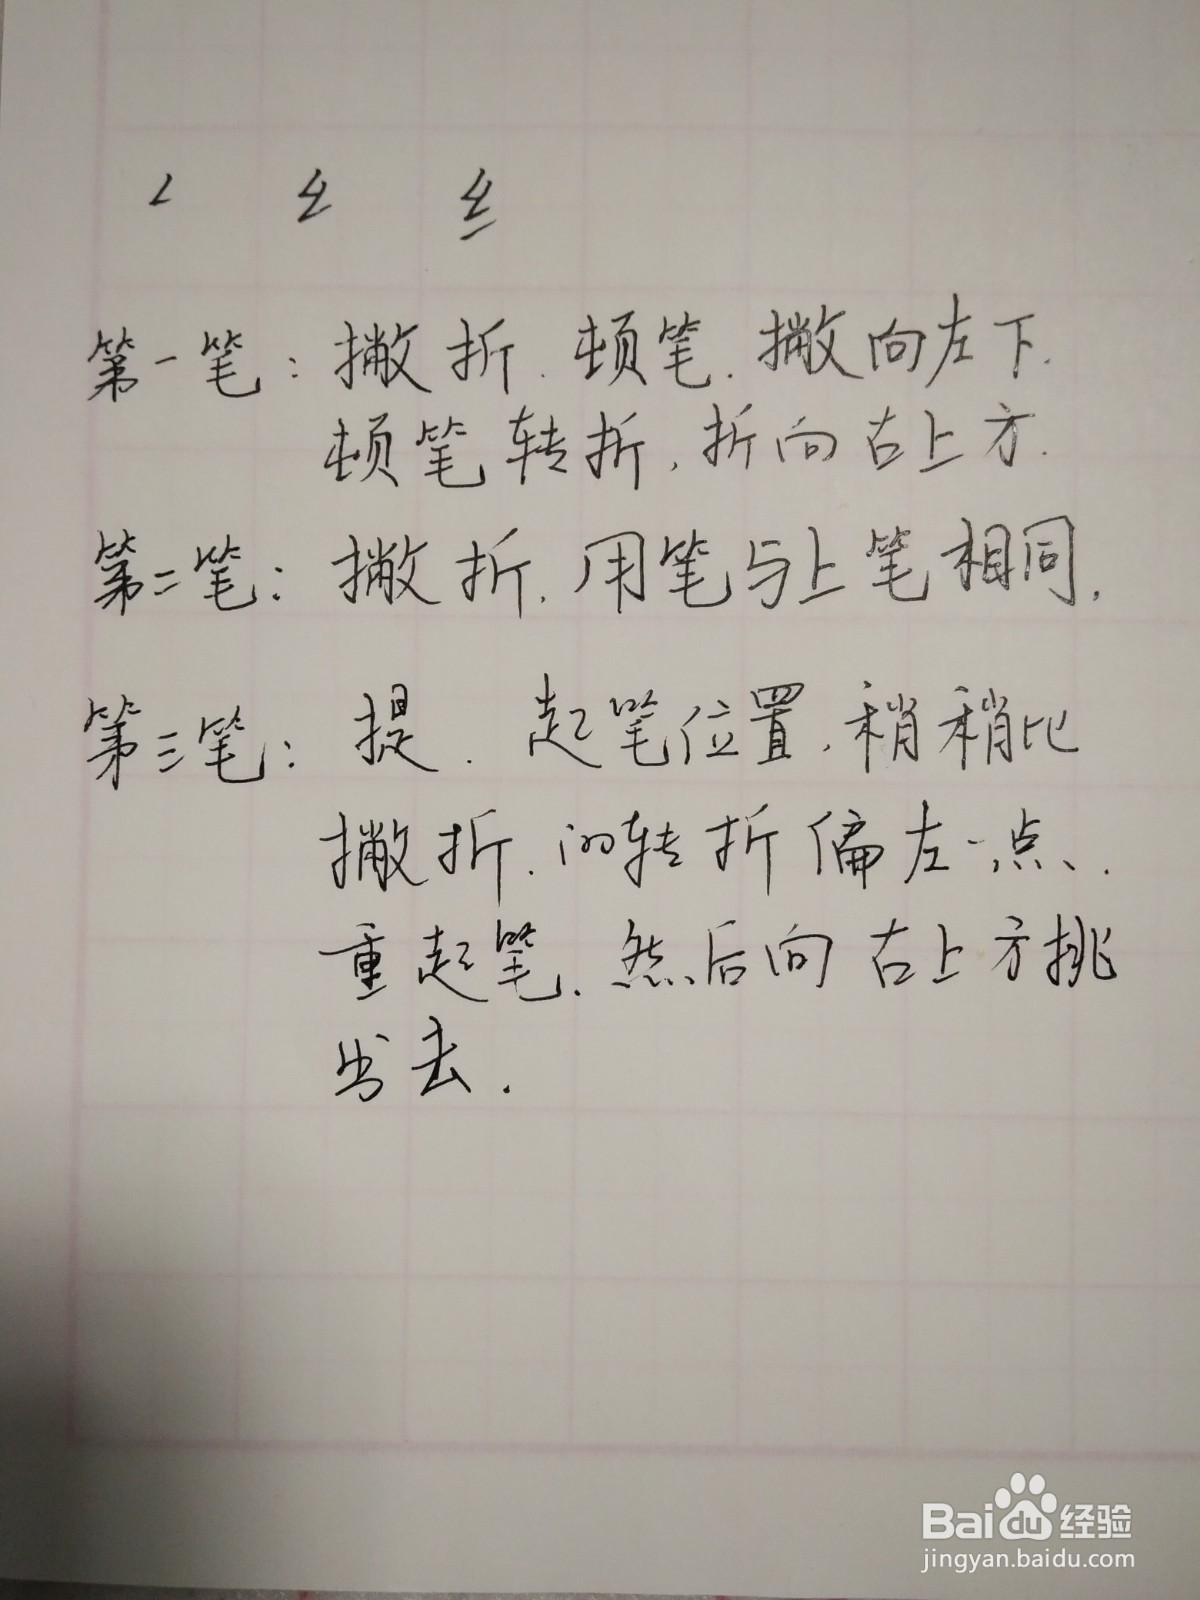 𠃋 纟 纟
第一笔：撇折.顿笔.撇向左下.
顿笔转折,折向右上方.
第二笔：撇折.用笔与上笔相同,
第三笔：提.起笔位置,稍稍比
撇折.的转折偏左一点、.
重起笔.然后向右上方挑
出去.
Baidu经验
jingyan.baidu.com